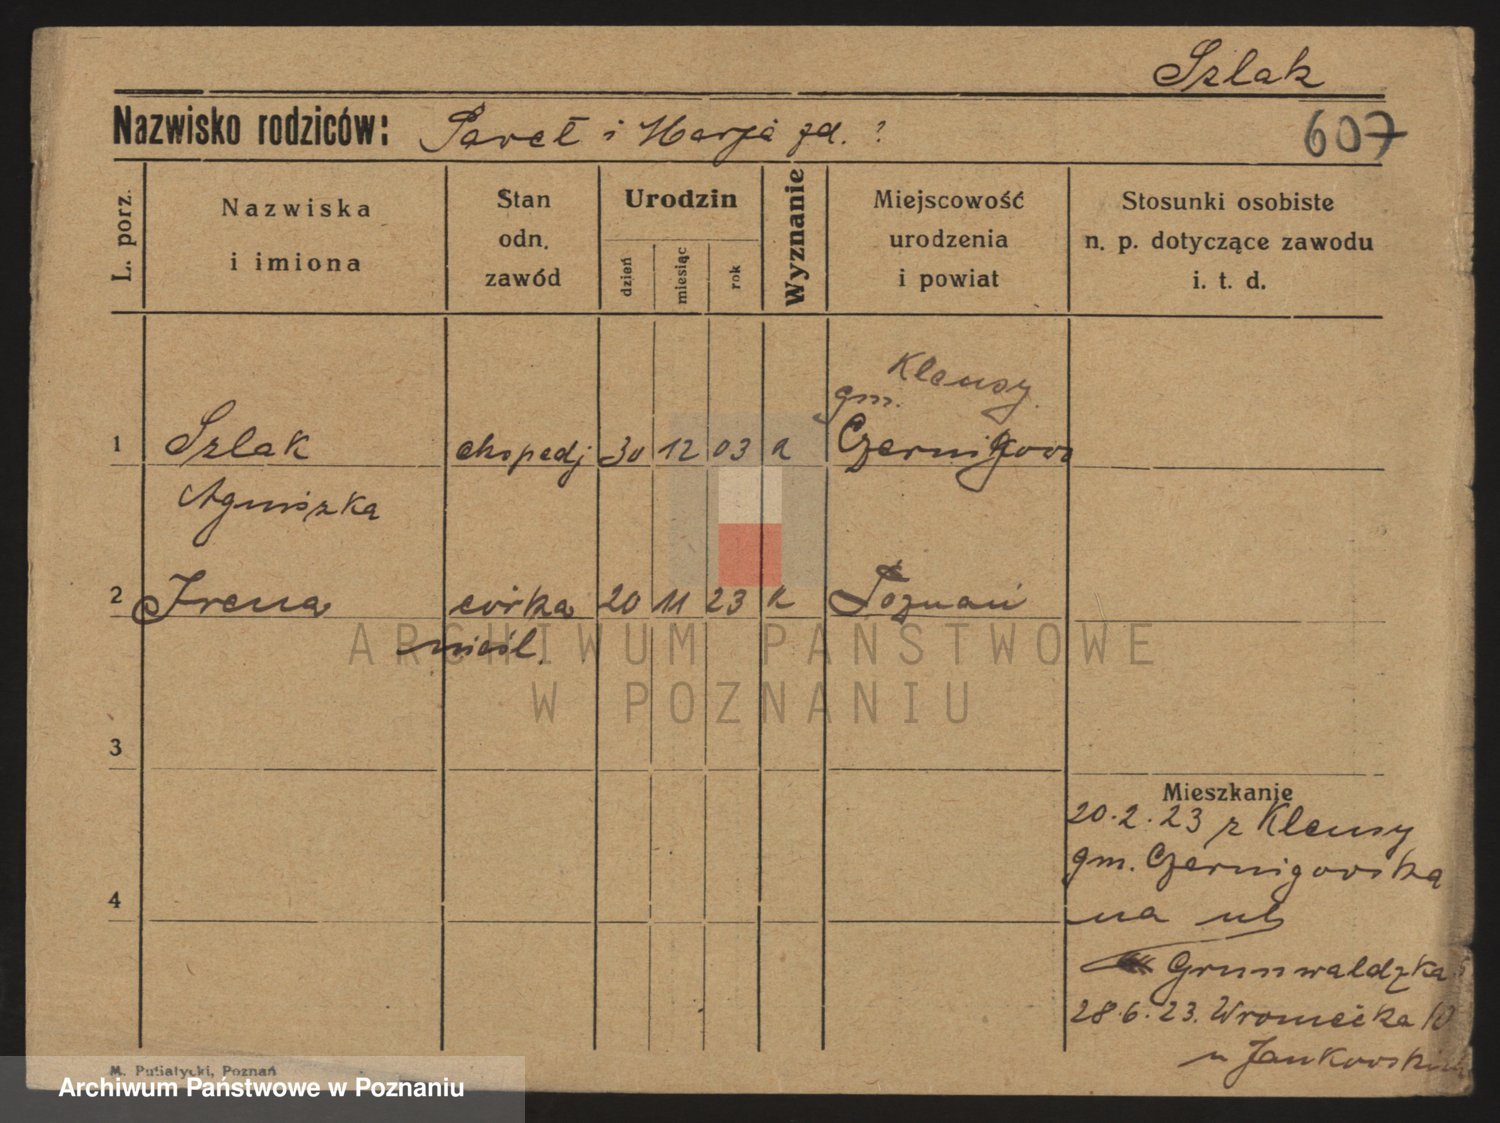 Szlak
Nazwisko rodziców: Paweł i Marja zd. ?
607
L. porz.
Nazwiska
i imiona
Stan
odn.
zawód
Urodzin
dzień
miesiąc
rok
Wyznanie
Miejscowość
urodzenia
i powiat
Stosunki osobiste
n. p. dotyczące zawodu
i. t. d.
Klausy
gm.
1 Szlak ekspedj 30 12 03
Agniszka
2 Irena córka 20 11 23 k Poznań
nieśl.
ARCHIWUM PAŃSTWOWE
W POZNANIU
3
4
Mieszkanie
20.2.23 z Klausy
gm. Czernigowska
na ul
Grunwaldzka
28.6.23. Wroniecka 10
u Jankowskich
M. Putiatycki, Poznań
Archiwum Państwowe w Poznaniu